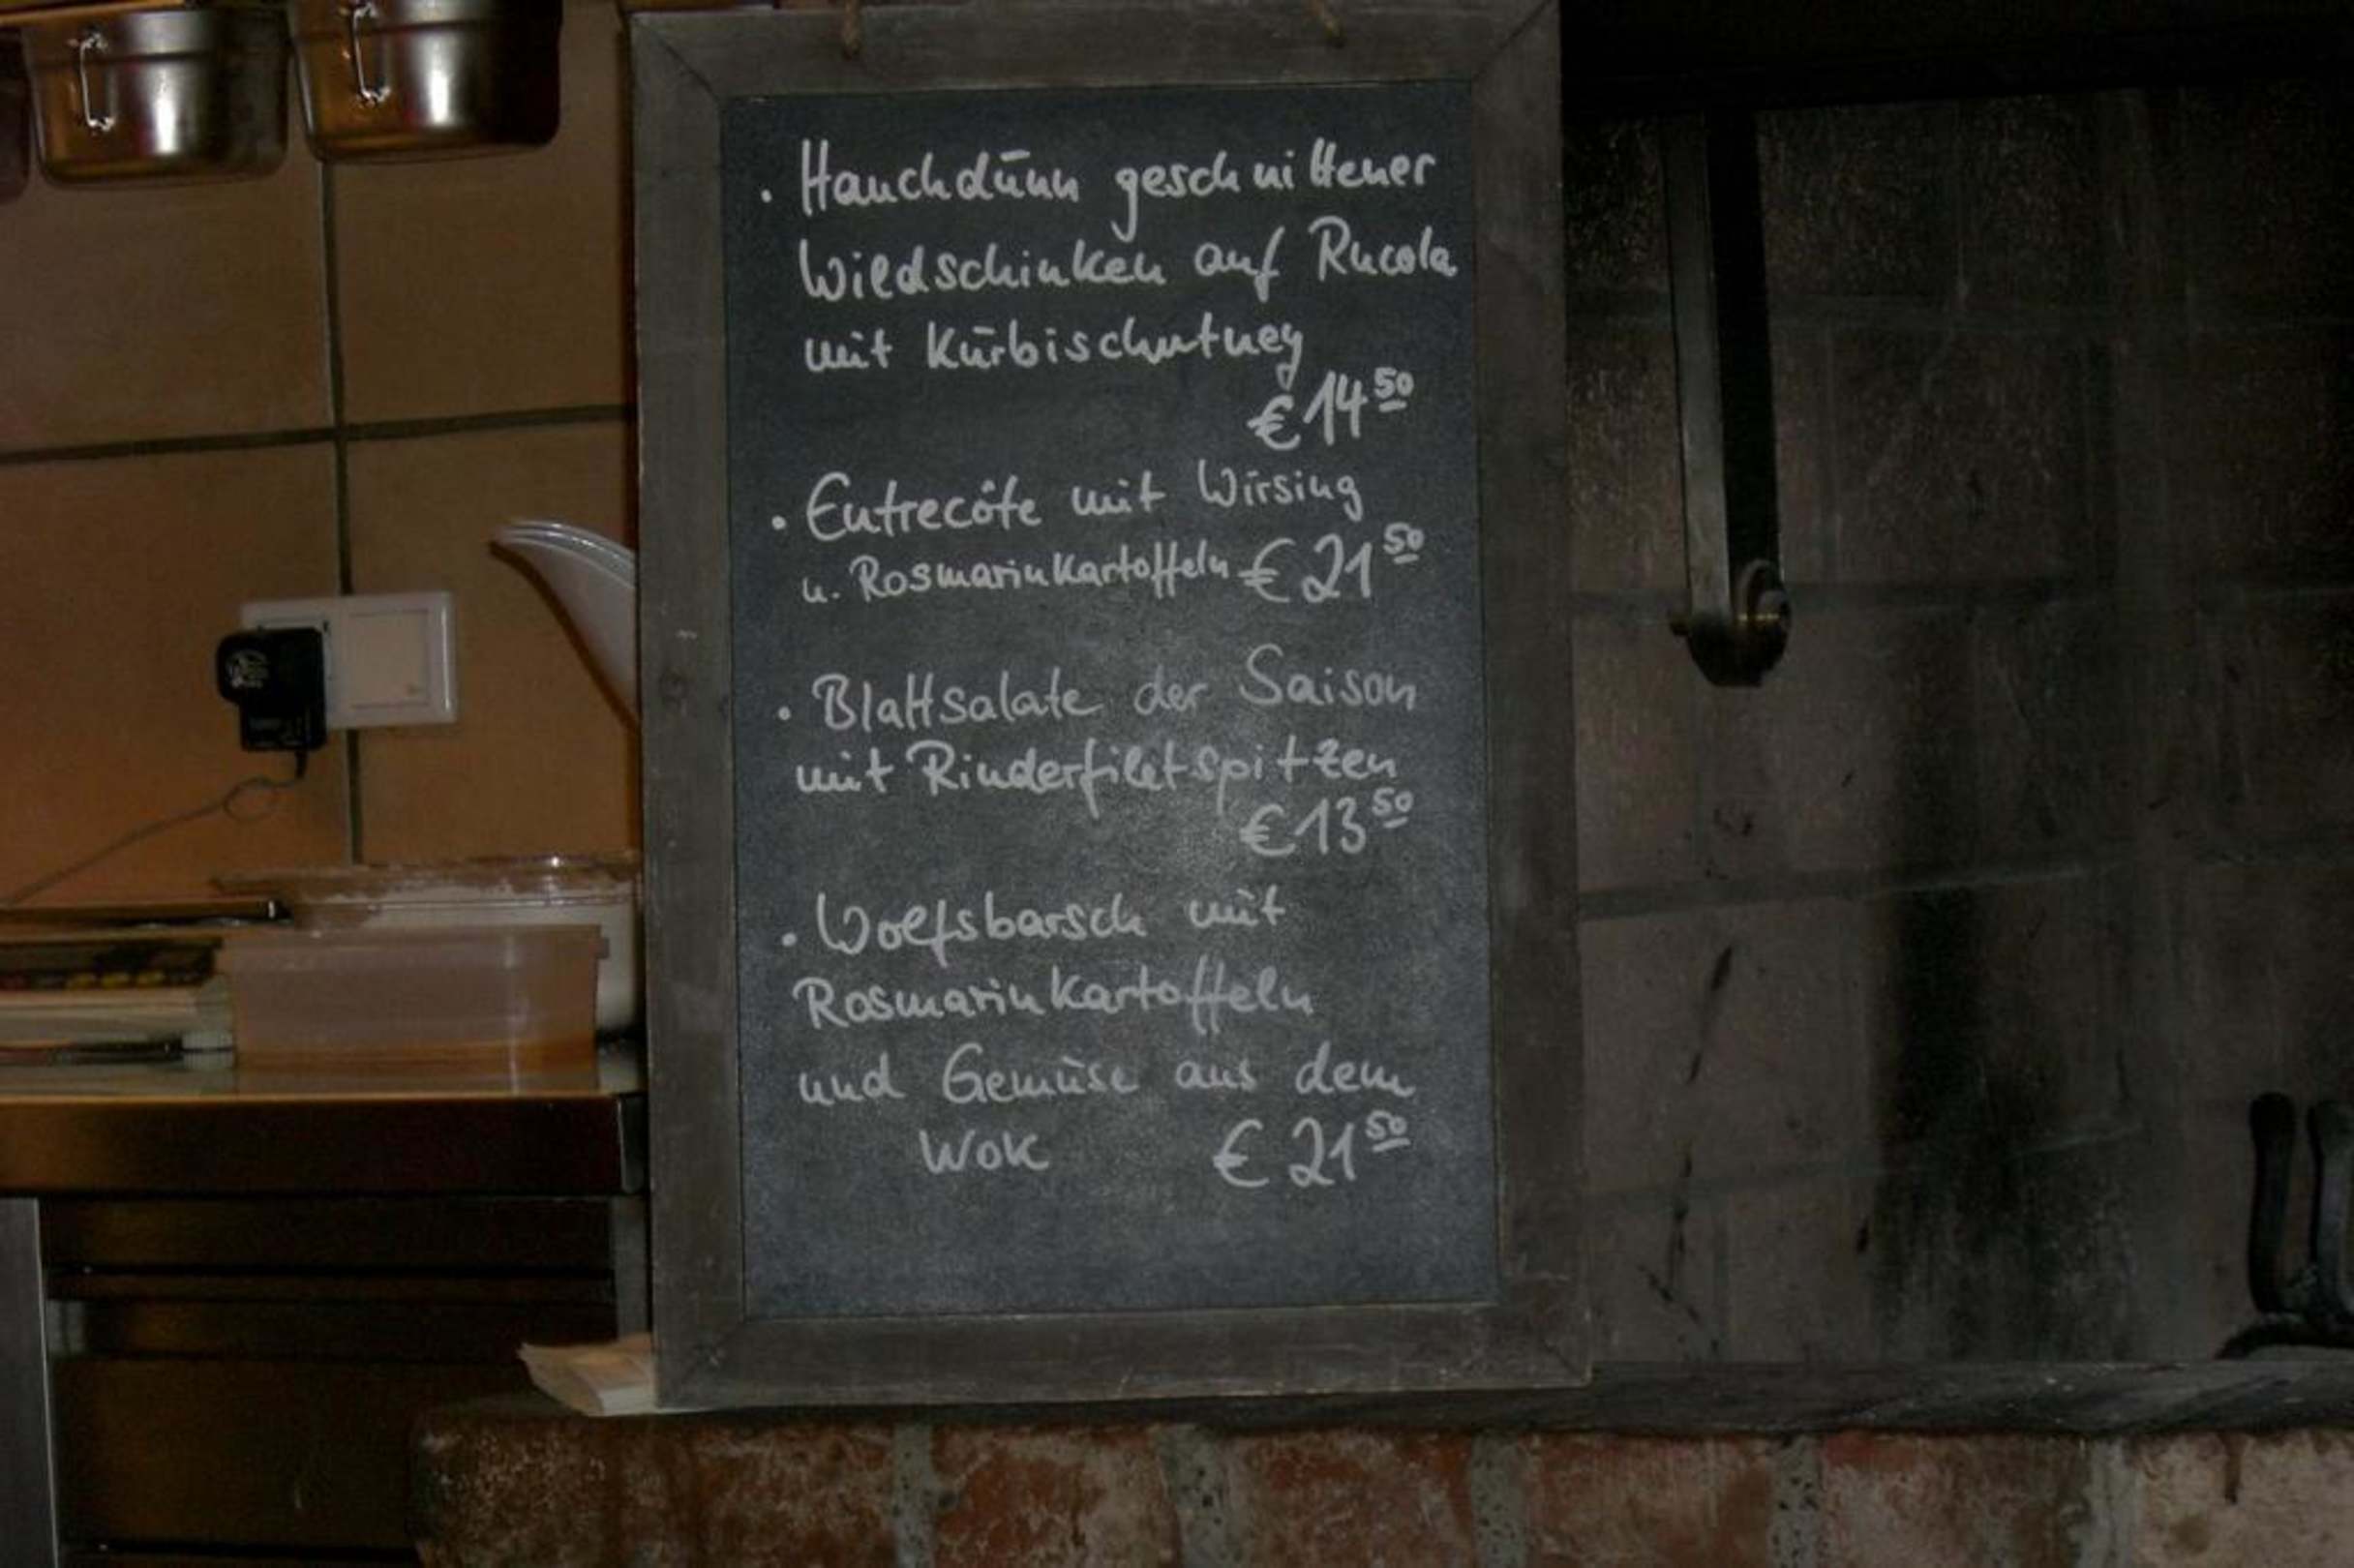 . Hauchdünn geschnittener
Wildschinken auf Rucola
mit Kürbischutney
€ 14 50
. Entrecôte mit Wirsing
u. Rosmarinkartoffeln € 21 50
. Blattsalate der Saison
mit Rinderfiletspitzen
€ 13 50
. Wolfsbarsch mit
Rosmarinkartoffeln
und Gemüse aus dem
Wok € 21 50